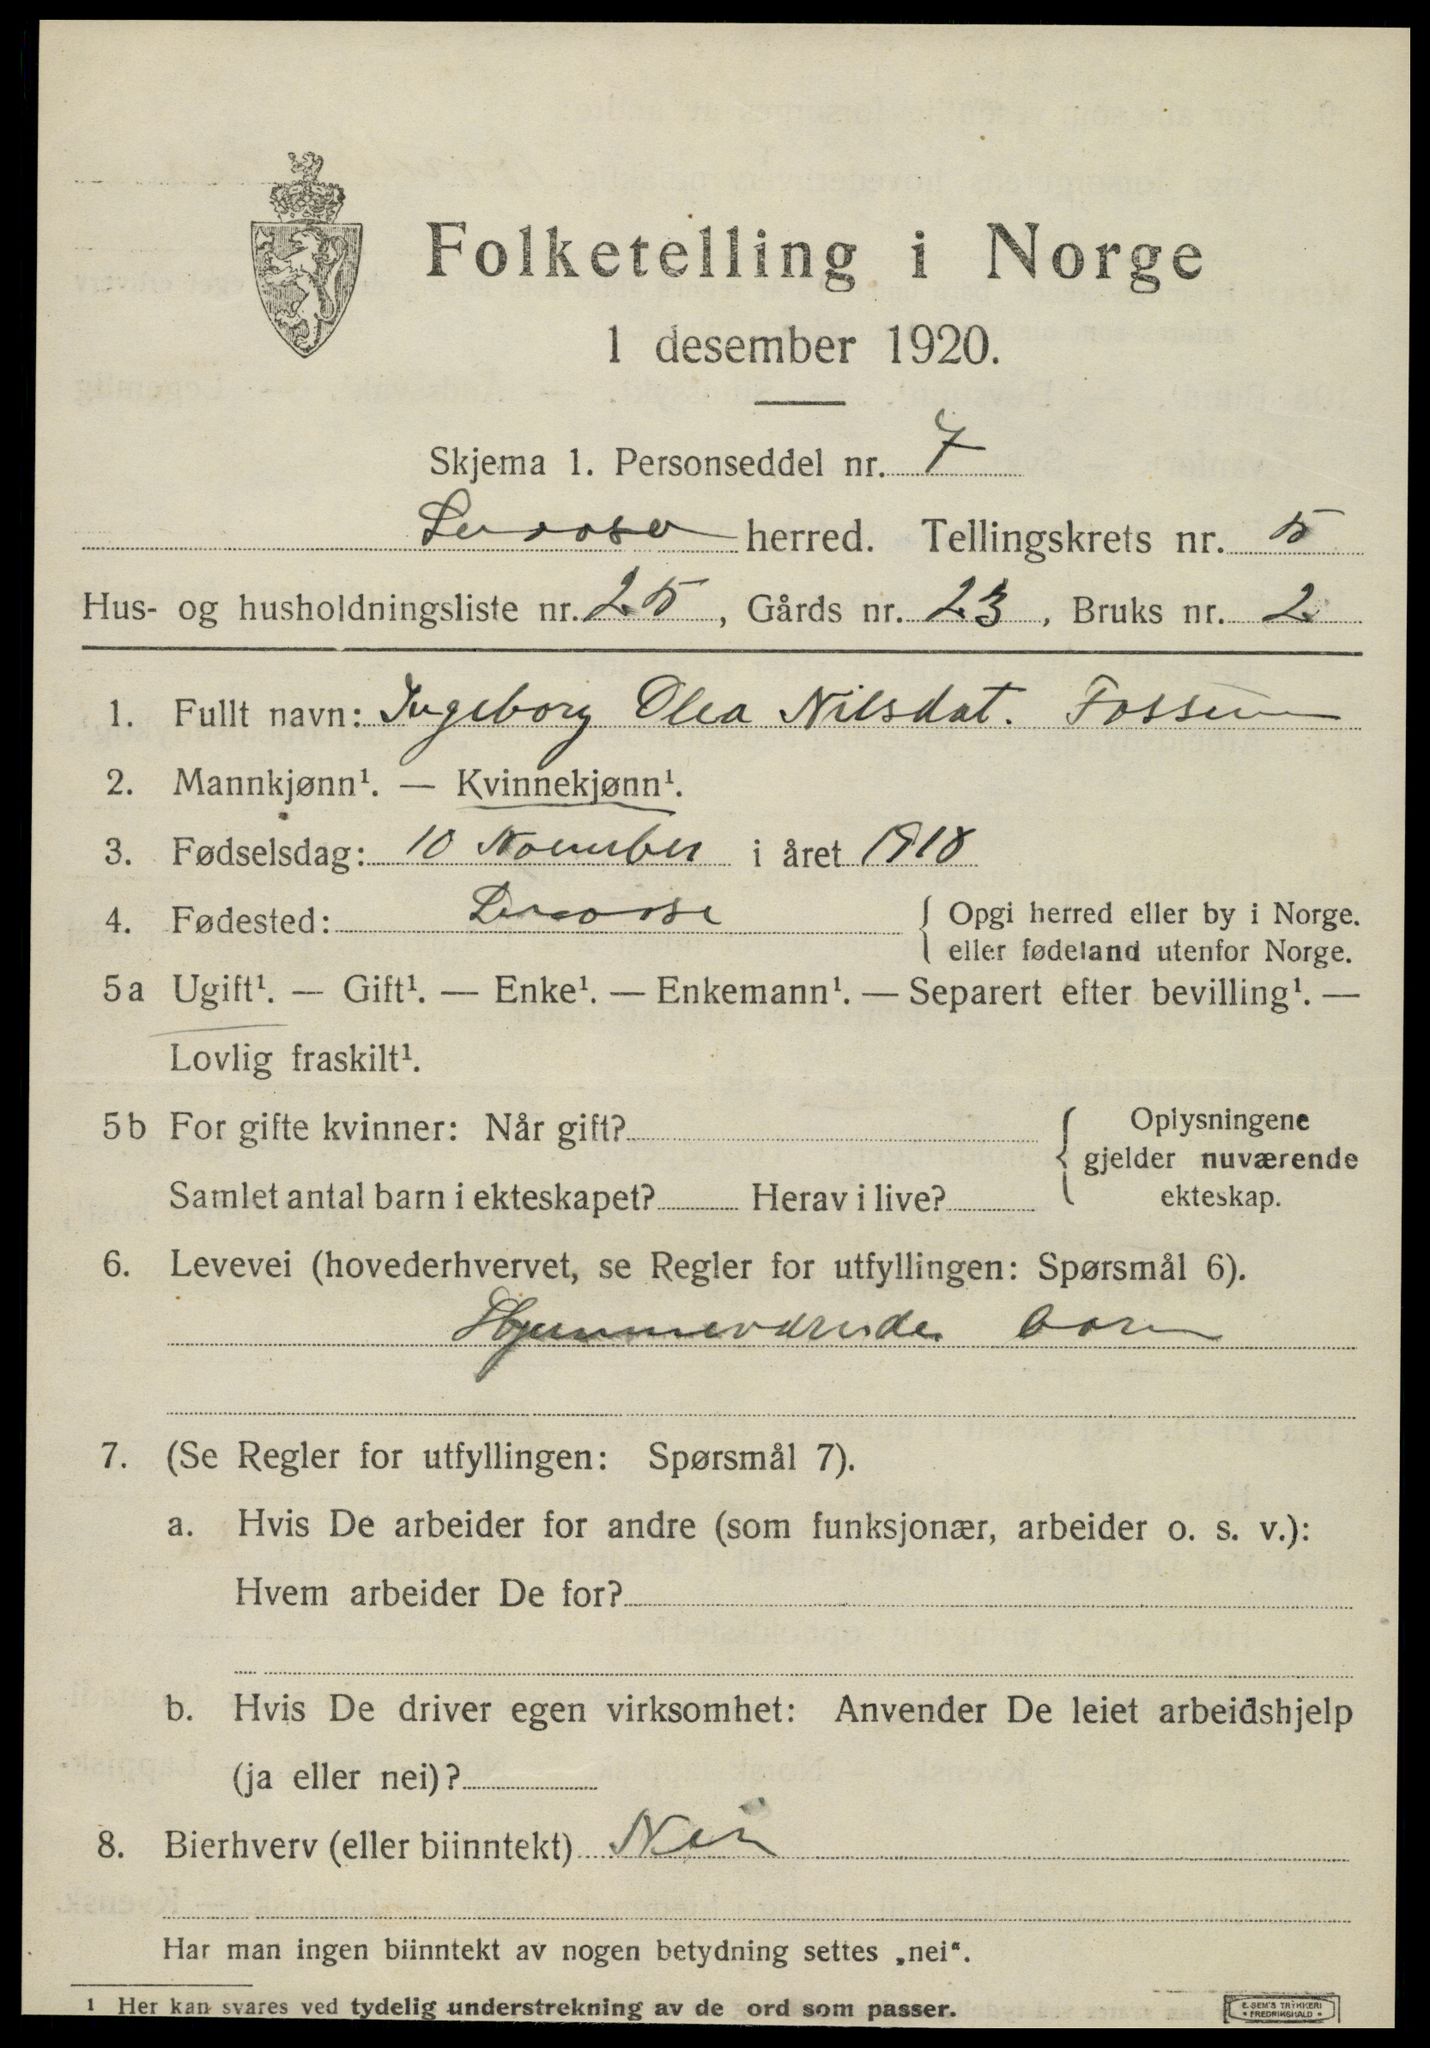 Folketelling i Norge
1 desember 1920.
Skjema 1. Personseddel nr. 7
herred. Tellingskrets nr. 5
Hus- og husholdningsliste nr. 25, Gårds nr. 23, Bruks nr. 2
1. Fullt navn: Ingeborg Olea Nilsdat. Fossum
2. Mannkjønn¹. — Kvinnekjønn¹.
3. Fødselsdag: 10 November i året 1918
4. Fødested: { Opgi herred eller by i Norge.
eller fødeland utenfor Norge.
5a Ugift¹. — Gift¹. — Enke¹. — Enkemann¹. — Separert efter bevilling¹. —
Lovlig fraskilt¹.
5b For gifte kvinner: Når gift? { Oplysningene
gjelder nuværende
Samlet antal barn i ekteskapet? Herav i live? ekteskap.
6. Levevei (hovederhvervet, se Regler for utfyllingen: Spørsmål 6).
Hjemmeværende barn
7. (Se Regler for utfyllingen: Spørsmål 7).
a. Hvis De arbeider for andre (som funksjonær, arbeider o. s. v.):
Hvem arbeider De for?
b. Hvis De driver egen virksomhet: Anvender De leiet arbeidshjelp
(ja eller nei)?
8. Bierhverv (eller biinntekt) Nei
Har man ingen biinntekt av nogen betydning settes „nei".
1 Her kan svares ved tydelig understrekning av de ord som passer.
E. SEM'S TRYKKERI
• FREDRIKSHALD •